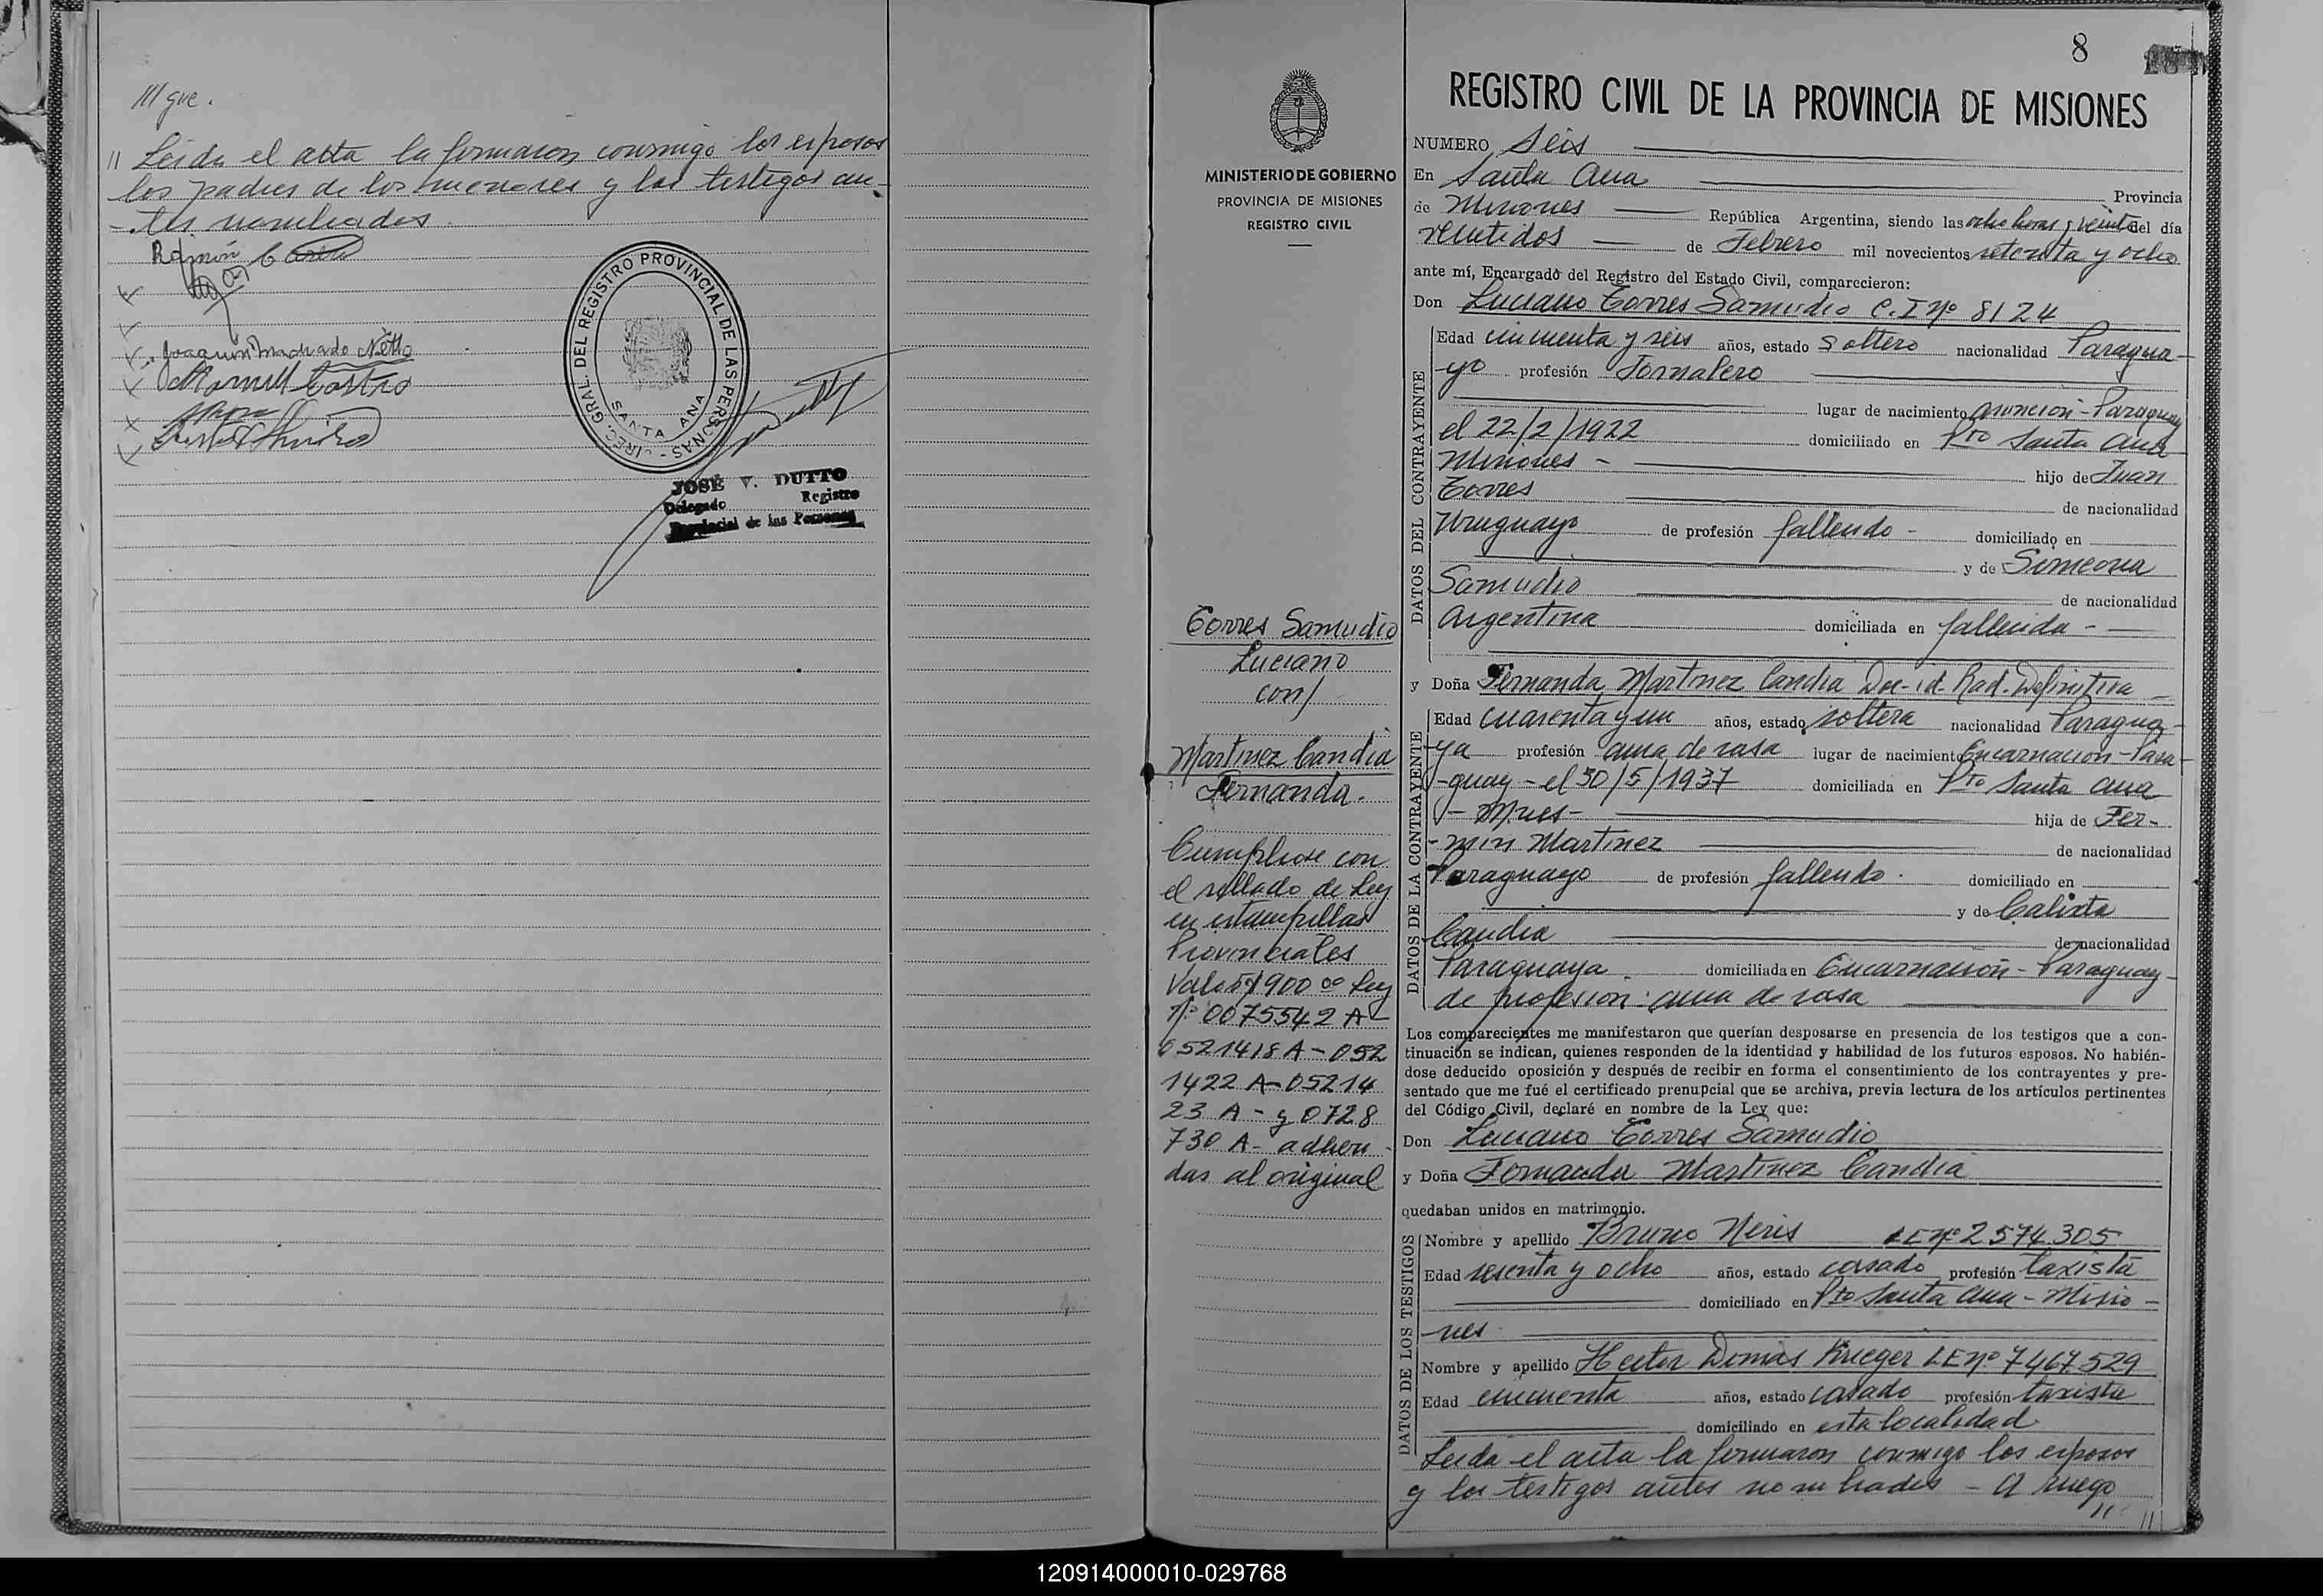 /// gue.
// Leída el acta la firmaron conmigo los esposos
los padres de los menores y los testigos an-
-tes nombrados
Ramón C
Joaquin Machado Netto
Castro
DIREC. GRAL. DEL REGISTRO PROVINCIAL DE LAS PERSONAS -
SANTA ANA
JOSÉ V. DUTTO
Delegado Registro
Provincial de las Personas
MINISTERIO DE GOBIERNO
PROVINCIA DE MISIONES
REGISTRO CIVIL
Torres Samudio
Luciano
con/
Martinez Candia
Fernanda.
Cumpliose con
el sellado de Ley
en estampillas
Provinciales
Valor $ 900 00 Ley
Nº 0075542 A
0521418 A - 052
1422 A - 05214
23 A - y 0728
730 A - adheri
das al original
8
REGISTRO CIVIL DE LA PROVINCIA DE MISIONES
NUMERO Seis
En Santa Ana Provincia
de Misiones República Argentina, siendo las ocho horas y veinte del día
veintidos de Febrero mil novecientos setenta y ocho
ante mí, Encargado del Registro del Estado Civil, comparecieron:
Don Luciano Torres Samudio C.I nº 8124
DATOS DEL CONTRAYENTE
Edad cincuenta y seis años, estado Soltero nacionalidad Paragua-
-yo profesión Jornalero
lugar de nacimiento Asunción - Paraguay
el 22/2/1922 domiciliado en Pto Santa Ana
Misiones - hijo de Juan
Torres de nacionalidad
Uruguayo de profesión fallecido - domiciliado en
y de Simeona
Samudio de nacionalidad
Argentina domiciliada en fallecida -
y Doña Fernanda Martinez Candia Doc-id. Rad. Definitiva
DATOS DE LA CONTRAYENTE
Edad cuarenta y un años, estado soltera nacionalidad Paragua-
-ya profesión ama de casa lugar de nacimiento Encarnación - Para-
-guay - el 30/5/1937 domiciliada en Pto Santa Ana
- Mnes - hija de Fer-
-min Martinez de nacionalidad
Paraguayo de profesión fallecido. domiciliado en
y de Calixta
Candia de nacionalidad
Paraguaya domiciliada en Encarnación - Paraguay -
de profesión: ama de casa
Los comparecientes me manifestaron que querían desposarse en presencia de los testigos que a con-
tinuación se indican, quienes responden de la identidad y habilidad de los futuros esposos. No habién-
dose deducido oposición y después de recibir en forma el consentimiento de los contrayentes y pre-
sentado que me fué el certificado prenupcial que se archiva, previa lectura de los artículos pertinentes
del Código Civil, declaré en nombre de la Ley que:
Don Luciano Torres Samudio
y Doña Fernanda Martinez Candia
quedaban unidos en matrimonio.
DATOS DE LOS TESTIGOS
Nombre y apellido Bruno Neris LE nº 2574.305
Edad sesenta y ocho años, estado casado profesión taxista
domiciliado en Pto Santa Ana - Misio-
-nes
Nombre y apellido Hector Domas Krueger LE nº 7467529
Edad cincuenta años, estado casado profesión taxista
domiciliado en esta localidad
Leida el acta la firmaron conmigo los esposos
y los testigos antes nombrados - A ruego
//
120914000010-029768